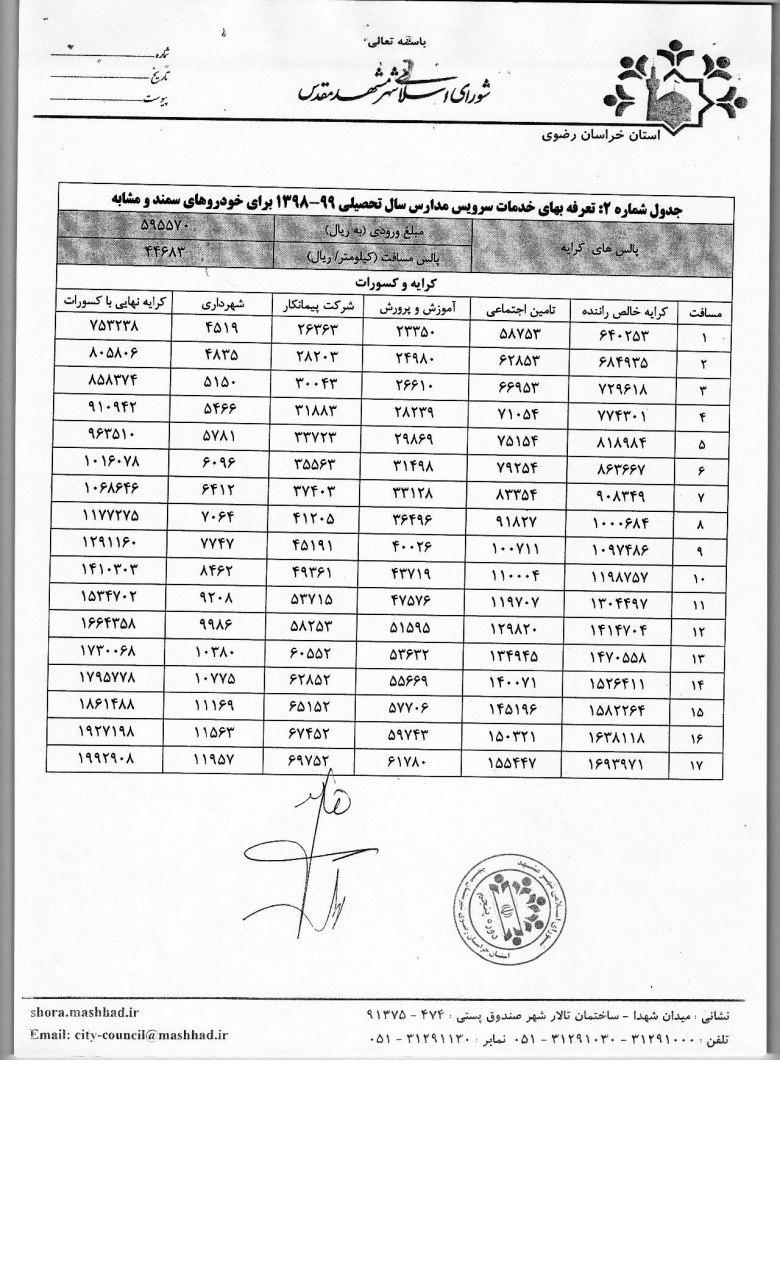 باسمه تعالی
شورای اسلامی شهر مشهد مقدس
شماره
تاریخ
پیوست
استان خراسان رضوی
جدول شماره ۲: تعرفه بهای خدمات سرویس مدارس سال تحصیلی ۹۹-۱۳۹۸ برای خودروهای سمند و مشابه
پالس های کرایه
مبلغ ورودی (به ریال) ۵۹۵۵۷۰
پالس مسافت (کیلومتر/ ریال) ۴۴۶۸۳
کرایه و کسورات
مسافت کرایه خالص راننده تامین اجتماعی آموزش و پرورش شرکت پیمانکار شهرداری کرایه نهایی با کسورات
۱ ۶۴۰۲۵۳ ۵۸۷۵۳ ۲۳۳۵۰ ۲۶۳۶۳ ۴۵۱۹ ۷۵۳۲۳۸
۲ ۶۸۴۹۳۵ ۶۲۸۵۳ ۲۴۹۸۰ ۲۸۲۰۳ ۴۸۳۵ ۸۰۵۸۰۶
۳ ۷۲۹۶۱۸ ۶۶۹۵۳ ۲۶۶۱۰ ۳۰۰۴۳ ۵۱۵۰ ۸۵۸۳۷۴
۴ ۷۷۴۳۰۱ ۷۱۰۵۴ ۲۸۲۳۹ ۳۱۸۸۳ ۵۴۶۶ ۹۱۰۹۴۲
۵ ۸۱۸۹۸۴ ۷۵۱۵۴ ۲۹۸۶۹ ۳۳۷۲۳ ۵۷۸۱ ۹۶۳۵۱۰
۶ ۸۶۳۶۶۷ ۷۹۲۵۴ ۳۱۴۹۸ ۳۵۵۶۳ ۶۰۹۶ ۱۰۱۶۰۷۸
۷ ۹۰۸۳۴۹ ۸۳۳۵۴ ۳۳۱۲۸ ۳۷۴۰۳ ۶۴۱۲ ۱۰۶۸۶۴۶
۸ ۱۰۰۰۶۸۴ ۹۱۸۲۷ ۳۶۴۹۶ ۴۱۲۰۵ ۷۰۶۴ ۱۱۷۷۲۷۵
۹ ۱۰۹۷۴۸۶ ۱۰۰۷۱۱ ۴۰۰۲۶ ۴۵۱۹۱ ۷۷۴۷ ۱۲۹۱۱۶۰
۱۰ ۱۱۹۸۷۵۷ ۱۱۰۰۰۴ ۴۳۷۱۹ ۴۹۳۶۱ ۸۴۶۲ ۱۴۱۰۳۰۳
۱۱ ۱۳۰۴۴۹۷ ۱۱۹۷۰۷ ۴۷۵۷۶ ۵۳۷۱۵ ۹۲۰۸ ۱۵۳۴۷۰۲
۱۲ ۱۴۱۴۷۰۴ ۱۲۹۸۲۰ ۵۱۵۹۵ ۵۸۲۵۳ ۹۹۸۶ ۱۶۶۴۳۵۸
۱۳ ۱۴۷۰۵۵۸ ۱۳۴۹۴۵ ۵۳۶۳۲ ۶۰۵۵۲ ۱۰۳۸۰ ۱۷۳۰۰۶۸
۱۴ ۱۵۲۶۴۱۱ ۱۴۰۰۷۱ ۵۵۶۶۹ ۶۲۸۵۲ ۱۰۷۷۵ ۱۷۹۵۷۷۸
۱۵ ۱۵۸۲۲۶۴ ۱۴۵۱۹۶ ۵۷۷۰۶ ۶۵۱۵۲ ۱۱۱۶۹ ۱۸۶۱۴۸۸
۱۶ ۱۶۳۸۱۱۸ ۱۵۰۳۲۱ ۵۹۷۴۳ ۶۷۴۵۲ ۱۱۵۶۳ ۱۹۲۷۱۹۸
۱۷ ۱۶۹۳۹۷۱ ۱۵۵۴۴۷ ۶۱۷۸۰ ۶۹۷۵۲ ۱۱۹۵۷ ۱۹۹۲۹۰۸
دوره پنجم
استان خراسان رضوی
نشانی : میدان شهدا - ساختمان تالار شهر صندوق پستی : ۴۷۴ - ۹۱۳۷۵
تلفن : ۳۱۲۹۱۰۰۰ - ۳۱۲۹۱۰۳۰ - ۰۵۱ نمابر : ۳۱۲۹۱۱۳۰ - ۰۵۱
shora.mashhad.ir
Email: city-council@mashhad.ir